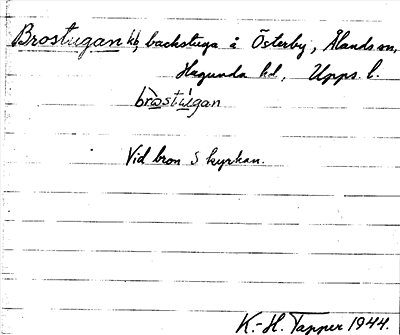 Brostugan kb, backstuga å Österby, Ålands sn,
Hagunda hd, Upps. l.
bròstùgan
Vid bron S kyrkan.
K.-H. Tapper 1944.